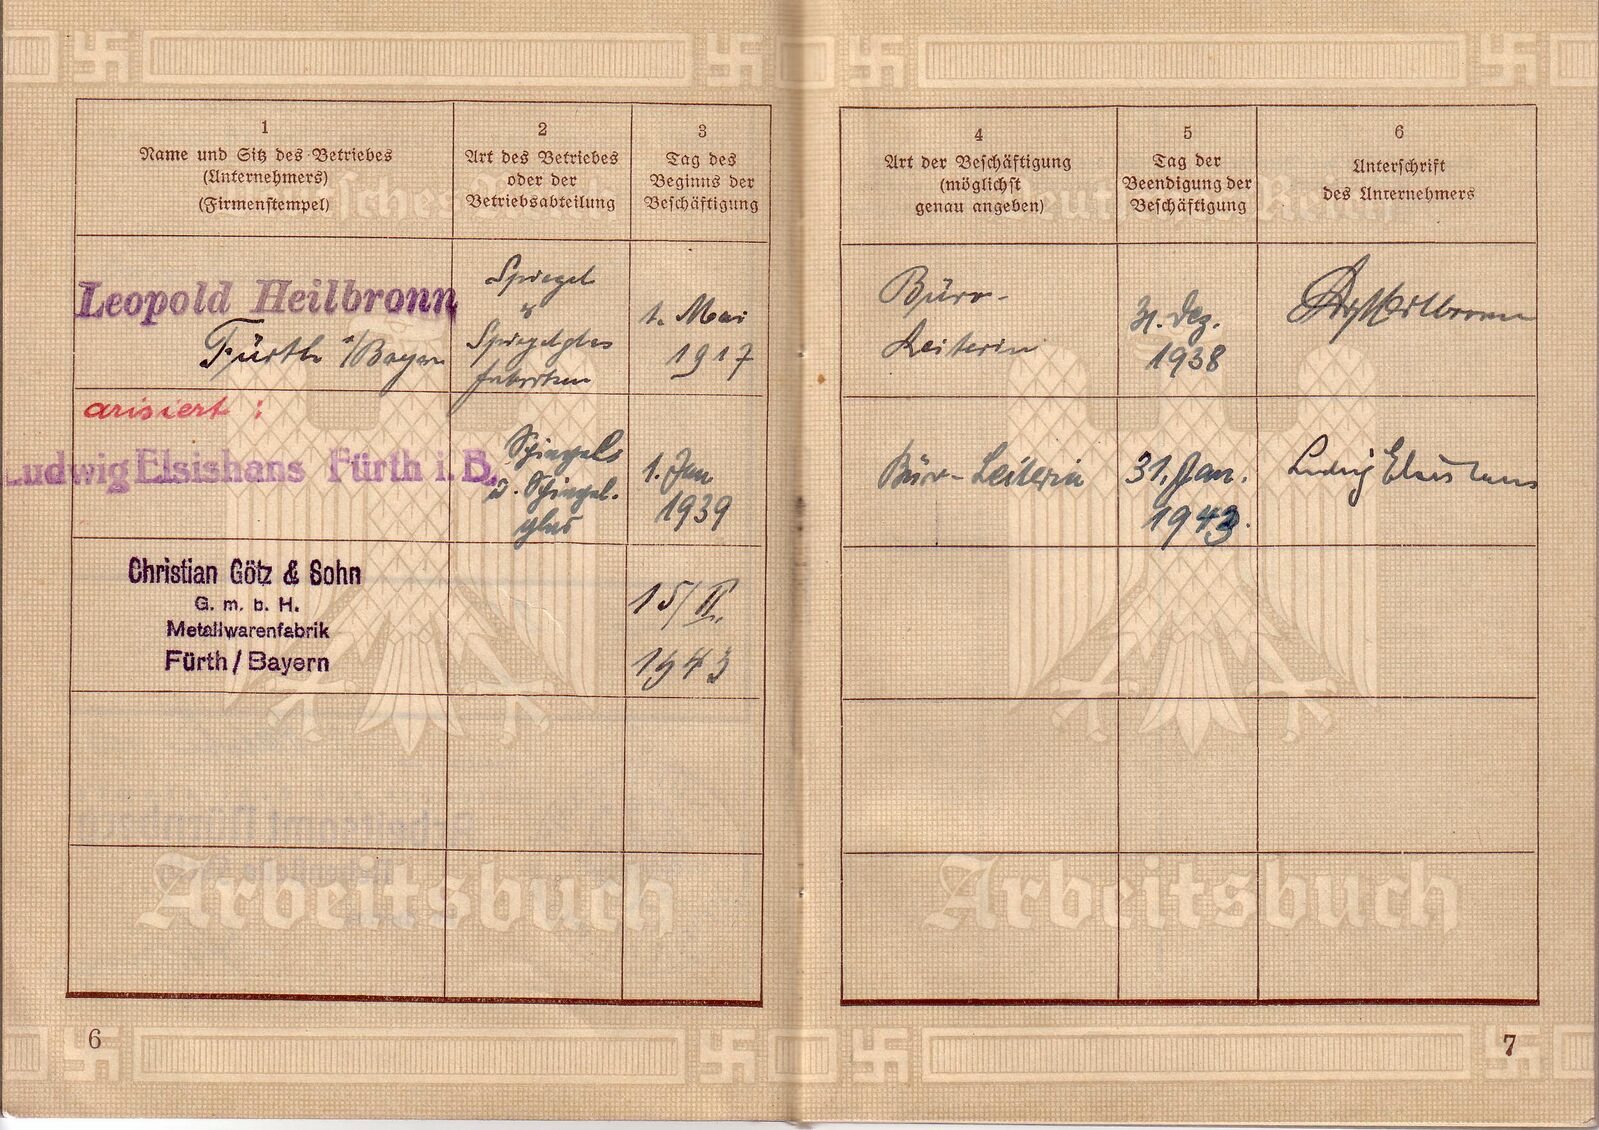 1
Name und Sitz des Betriebes
(Unternehmers)
(Firmenstempel)
2
Art des Betriebes
oder der
Betriebsabteilung
3
Tag des
Beginns der
Beschäftigung
4
Art der Beschäftigung
(möglichst
genau angeben)
5
Tag der
Beendigung der
Beschäftigung
6
Unterschrift
des Unternehmers
Leopold Heilbronn
Fürth i/Bayern
Spiegel
&
Spiegelglas
fabriken
1. Mai
1917
Büro-
Leiterin
31. Dez.
1938
Heilbronn
arisiert :
Ludwig Elsishans Fürth i. B.
Spiegel
u. Spiegel-
glas
1. Jan
1939
Büro-Leiterin
31. Jan.
1943.
Ludwig Elsishans
Christian Götz & Sohn
G. m. b. H.
Metallwarenfabrik
Fürth / Bayern
15/II.
1943
Arbeitsamt Nürnberg
Arbeitsbuch
Arbeitsbuch
6
7